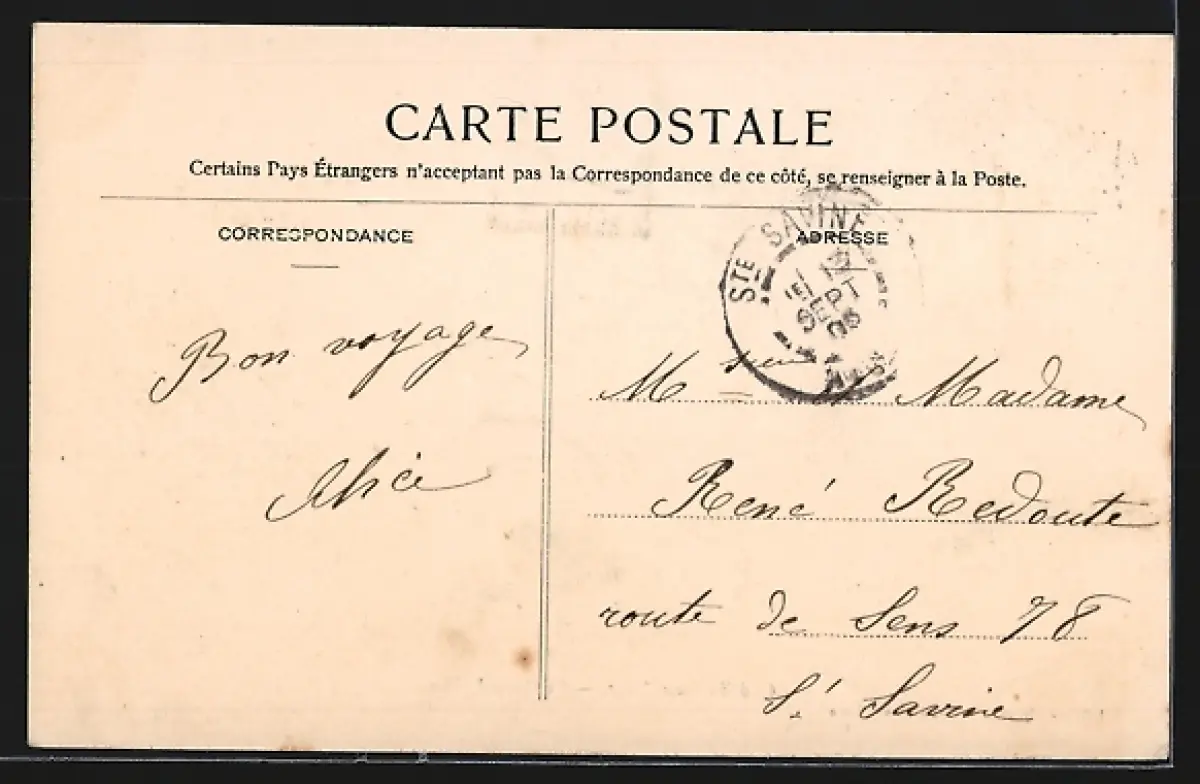 CARTE POSTALE
Certains Pays Étrangers n'acceptant pas la Correspondance de ce côté, se renseigner à la Poste.
CORRESPONDANCE
Bon voyage
Alice
ADRESSE
STE SAVINE
SEPT
Msieur et Madame
René Redoute
route de Sens 78
St Savine